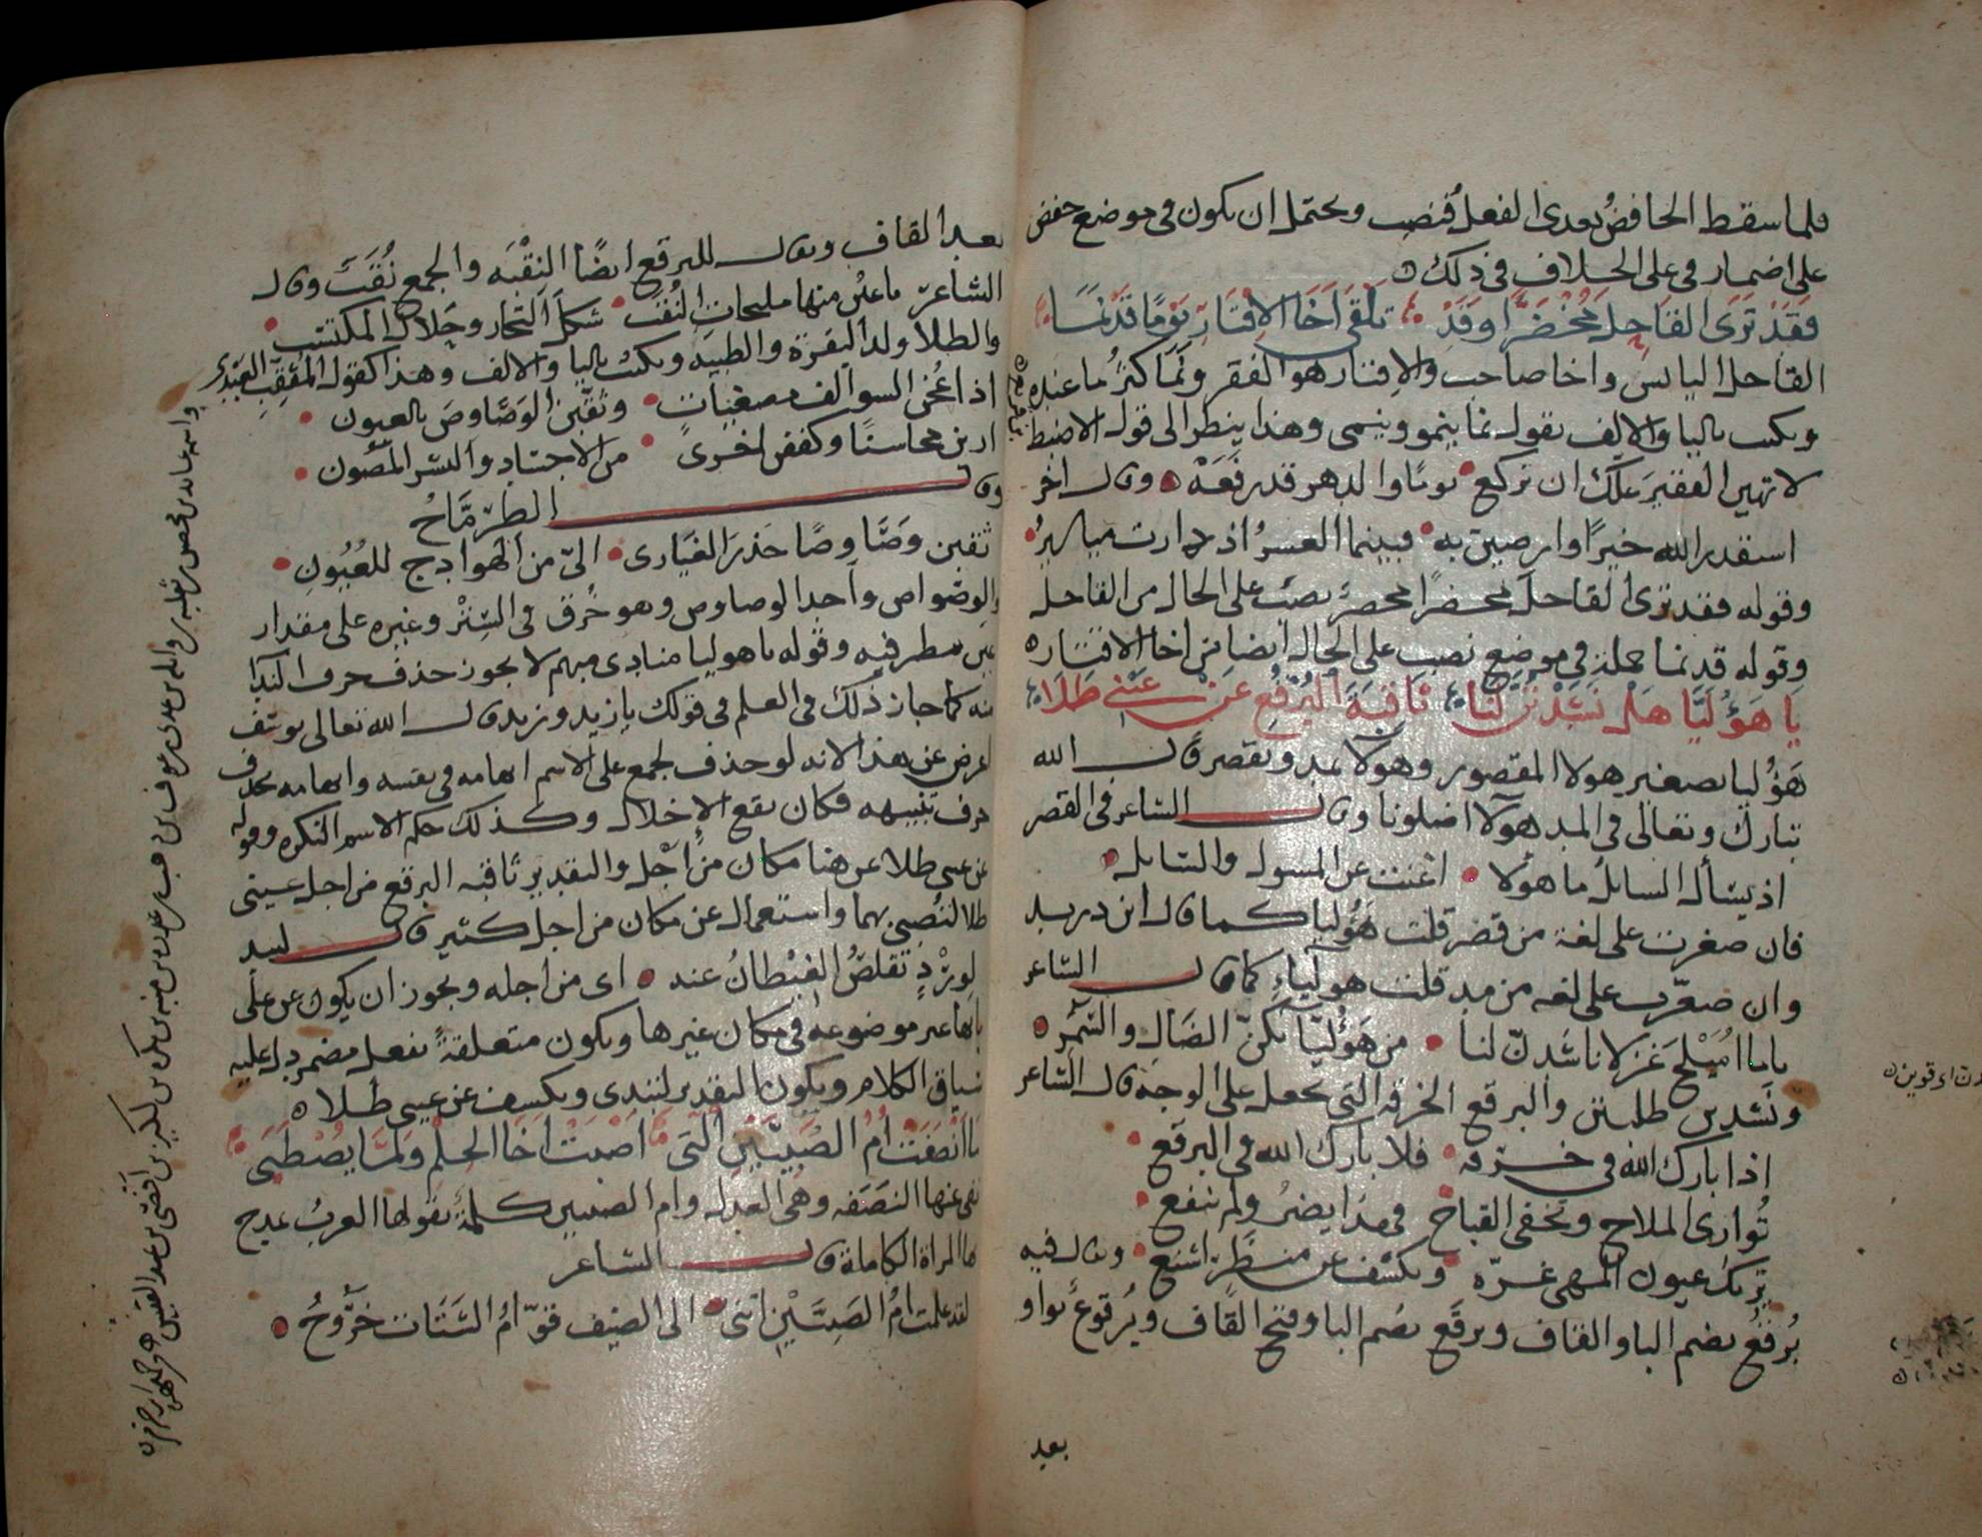 فلما سقط الخافض تعدى الفعل فنصب ويحتمل ان يكون في موضع خفض
على اضمار في على الخلاف في ذلك ه
فَقَدْ تَرَى القَاحِلَ مُخْضَرًّا وَقَدْ تَلْقَى أَخَا الاِقْتَارِ يَوْمًا قَدْ نَمَا
القاحل اليابس واخا صاحب والاقتار هو الفقر ونما كثر ما عنده
ويكتب باليا والالف تقول نما ينمو وينمى وهذا ينظر الى قول الاضبط
لا تهين الفقير علك ان تركع يوما والدهر قد رفعه وقال اخر
استقدر الله خيرا وارضين به فبينما العسر اذ دارت مياسير
وقوله فقد ترى القاحل مخضرا مخضر نصب على الحال من القاحل
وقوله قد نما جملة في موضع نصب على الحال ايضا من اخا الاقتار ه
يَا هَؤُلَيَّا هَلْ نَشَدْتُنَّ لَنَا ثَاقِبَةَ البُرْقُعِ عَنْ عَيْنَيْ طَلَا
هَؤُليا تصغير هولا المقصور وهولا يمد ويقصر قال الله
تبارك وتعالى في المد هولا اضلونا وقال الشاعر في القصر
اذ يسأل السايل ما هولا اغنت عن المسول والسايل
فان صغرت على لغة من قصر قلت هَؤُليا كما قال ابن دريد
وان صغرت على لغه من مد قلت هوليّاءِ كما قال الشاعر
ياما امَيْلح غزلانا شدنّ لنا من هَؤُليّائكنّ الضال والسَّمُر
ونشدتن طلبتن والبرقع الخرقه التي تجعل على الوجه قال الشاعر
اذا بارك الله في خرقه فلا بارك الله في البرقع
تُوارى الملاح وتخفى القباح فهذا يضرُ ولم ينفع
تريك عيون المهى غرّه وتكشف عن منظر اشنع ويقال فيه
بُرقُع بضم البا والقاف وبرقَع بضم البا وفتح القاف وبُرقوع بواو
بعد
بعد القاف ويقال للبرقع ايضًا النقْبَه والجمع نُقَب وقال
الشاعر باعين منها مليحات النُقَب شكل التجار وحلال المكتسب
والطلا ولد البقرة والظبيه ويكتب باليا والالف وهذا كقول المثقب العبدي
وثقّبن الوَصَاوِصَ بالعيون
ارين محاسنًا وكنن اخرى من الاجياد والبشر المصون
وقال الطرِمَّاحُ
ثقبن وَصَاوِصًا حَذَرَ الغَيَارى اليّ من الهوادج للعُيُونِ
والوصواص واحد الوصاوص وهو خُرق في السِتْر وغيره على مقدار
عين ينظر فيه وقوله يا هوليا منادى مبهم لا يجوز حذف حرف الندا
منه كما جاز ذلك في العلم في قولك يا زيد وزيد قال الله تعالى يوسف
اعرض عن هذا لانه لو حذف لجمع على الاسم ابهامه في نفسه وابهامه بحذف
حرف تنبيهه فكان يقع الاخلال وكذلك حكم الاسم النكره وقوله
عن عيني طلا عن هنا مكان من اَجْل والتقدير ثاقبه البرقع من اجل عيني
طلا لتُصبي بهما واستعمال عن مكان من اجل كثير قال لبيد
لوِرْدٍ تقلصُ الغيطانُ عنه اى من اجله ويجوز ان يكون عن على
بابها غير موضوعه في مكان غيرها ويكون متعلقةً بفعل مضمر دل عليه
سياق الكلام ويكون التقدير لتبدى وتكشف عن عيني طلا ه
مَا أَنْصَفَتْ أُمُّ الصُبَيَّيْنِ الَّتِي أَصْبَتْ أَخَا الحِلْمِ وَلَمَّا يُصْطَبَى
نفى عنها النَصَفَه وهى العدل وام الصبيين كلمة تقولها العرب تمدح
بها المراة الكاملة قال الشاعر
لقد علمت امُ الصَبِيَّيْنِ انني الى الضيف قوّامُ السَنَات خَرُوجُ